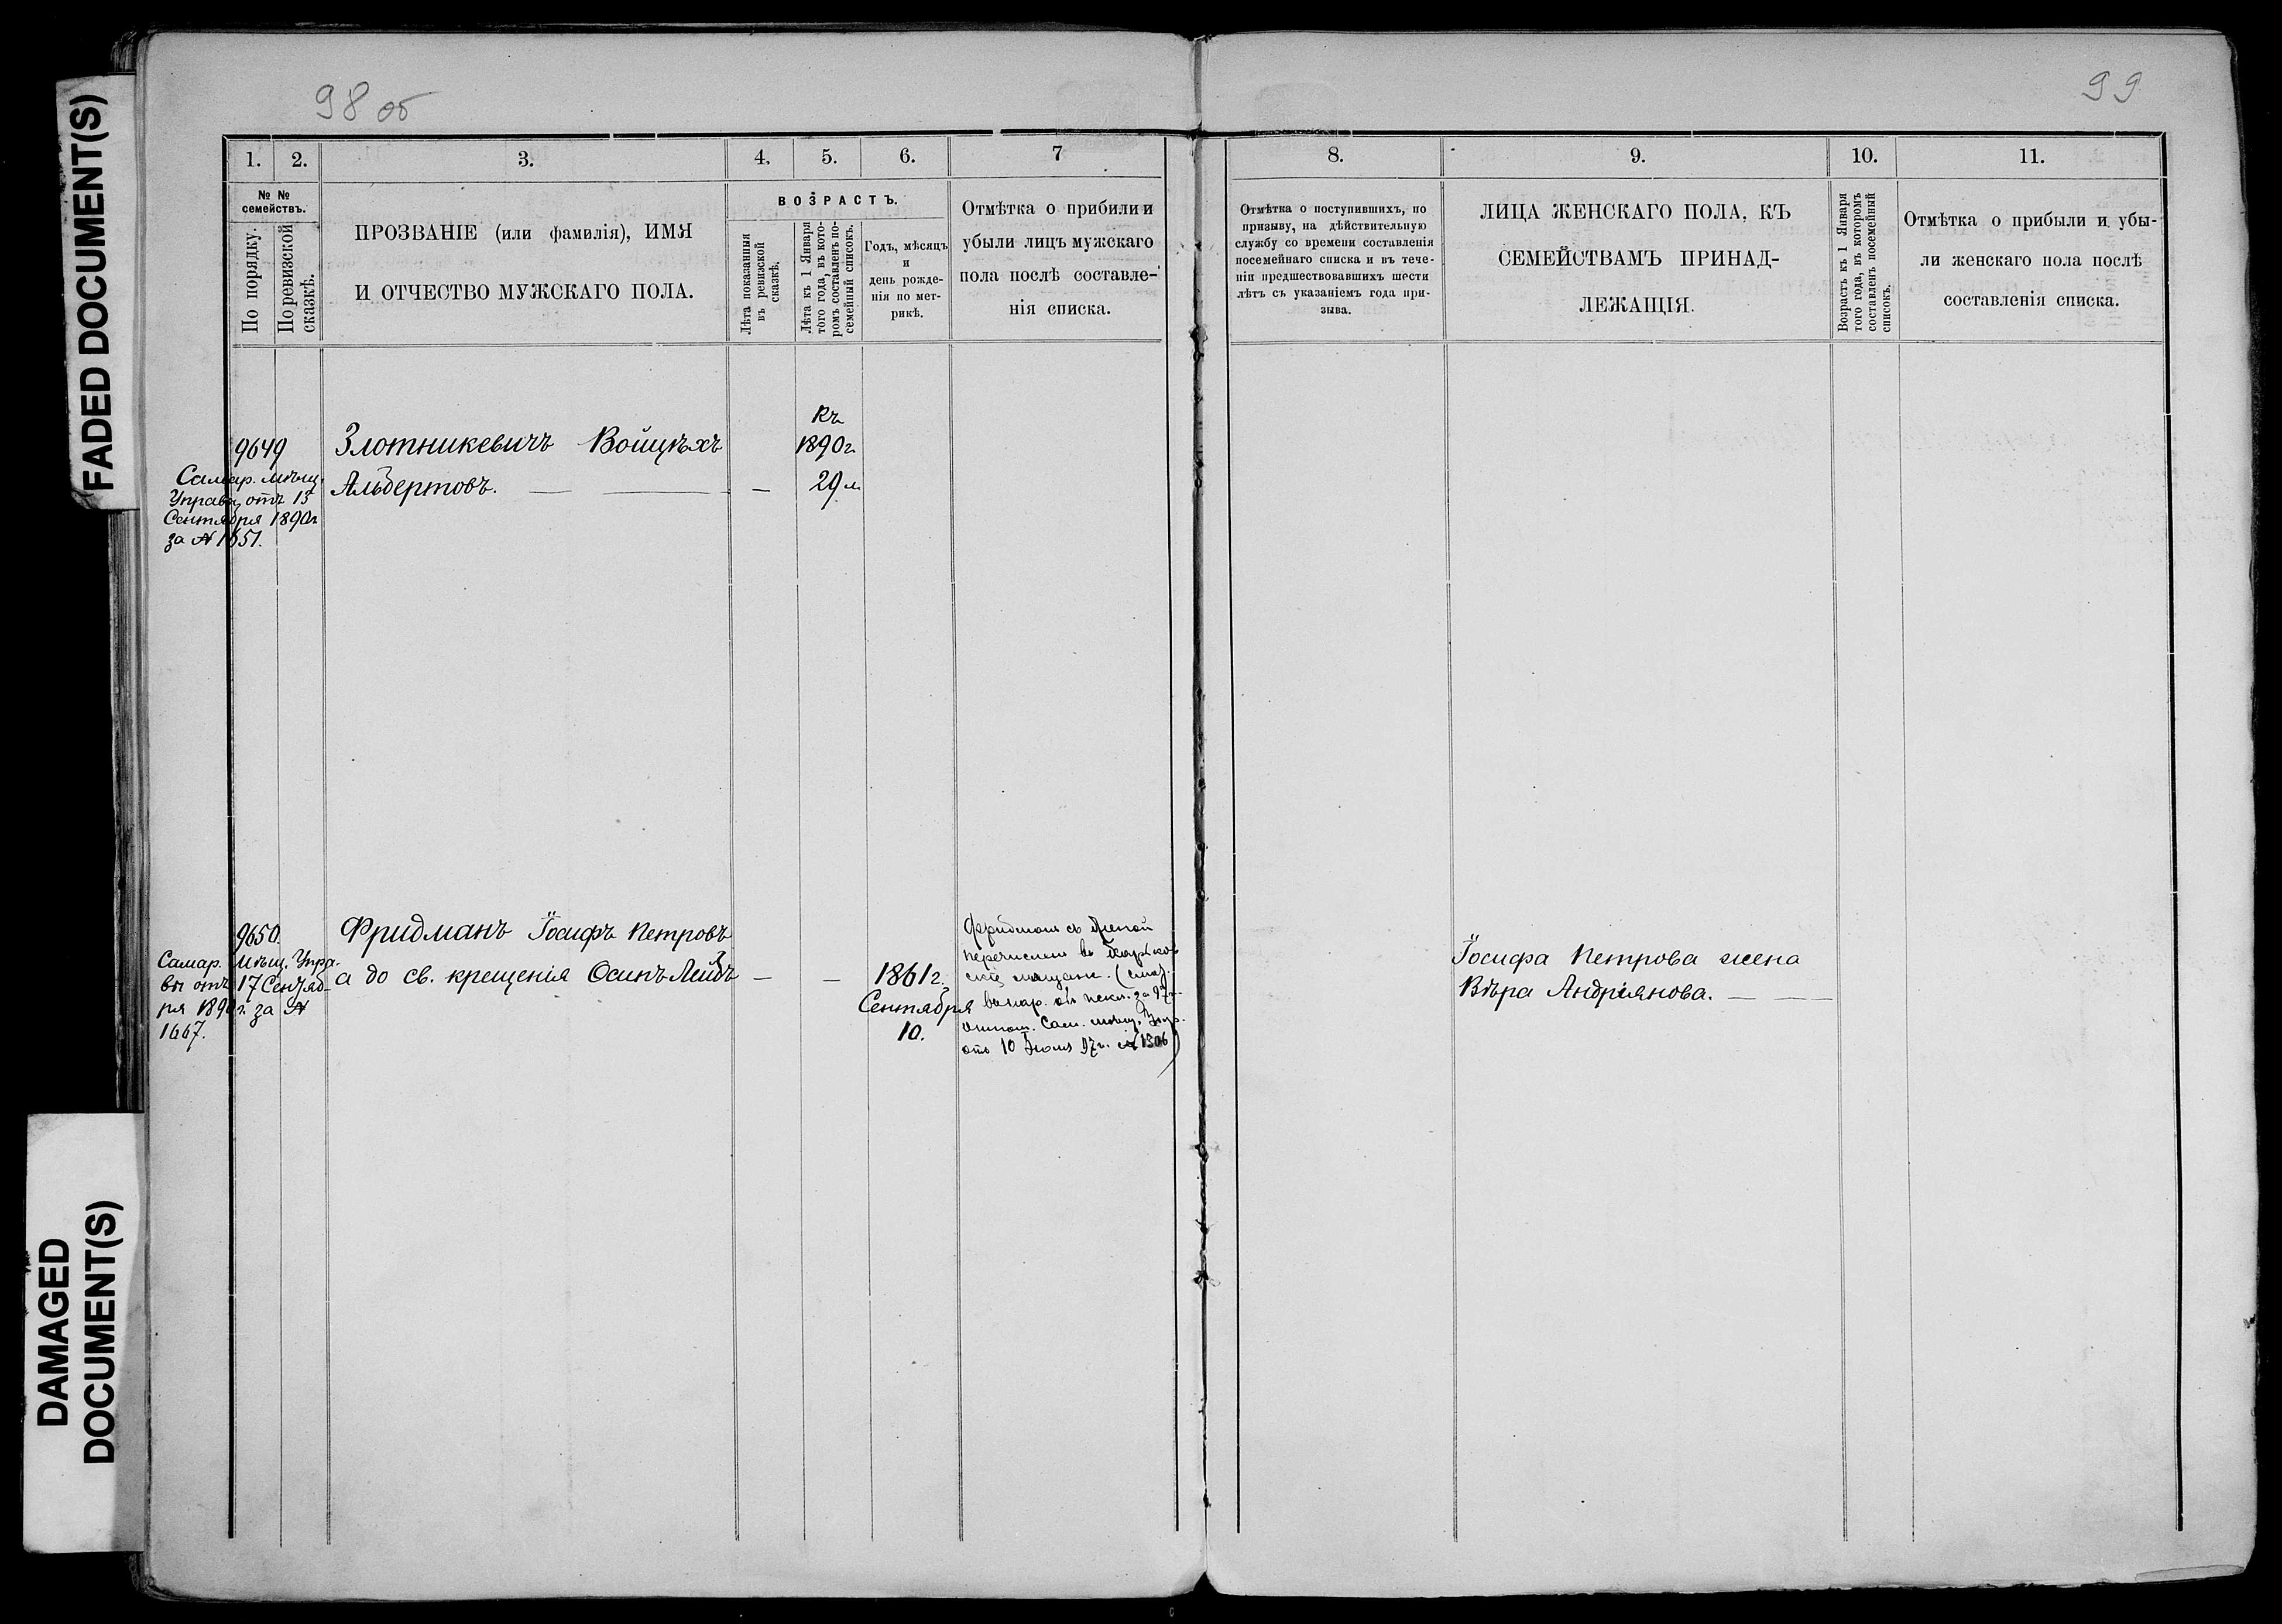 FADED DOCUMENT(S)
DAMAGED
DOCUMENT(S)
98 об
1.
2.
3.
4.
5.
6.
7
№ №
семействъ.
По порядку.
По ревизской
сказкѣ.
ПРОЗВАНІЕ (или фамилія), ИМЯ
И ОТЧЕСТВО МУЖСКАГО ПОЛА.
ВОЗРАСТЪ.
Лѣта показанія
въ ревизской
сказкѣ.
Лѣта къ 1 Января
того года, въ кото-
ромъ составленъ по-
семейный списокъ.
Годъ, мѣсяцъ
и
день рожде-
нія по мет-
рикѣ.
Отмѣтка о прибыли и
убыли лицъ мужскаго
пола послѣ составле-
нія списка.
9649
Самар. мѣщ.
Управы отъ 13
Сентября 1890г
за № 1651.
Злотникевичъ Войцѣхъ
Альбертовъ. — — —
Къ
1890г
29 л
9650.
Самар. Мѣщ. Упра-
вы отъ 17 Сентяб-
ря 1890г. за №
1667.
Фридманъ Іосифъ Петровъ
а до св. крещенія Осипъ Лейбъ — —
1861г.
Сентября
10.
Фридманъ съ женой
перечисленъ въ
мѣщане.
за 97г.
Сам. мѣщ. Упр.
отъ 10 Іюля 97г. № 1306)
99
8.
9.
10.
11.
Отмѣтка о поступившихъ, по
призыву, на дѣйствительную
службу со времени составленія
посемейнаго списка и въ тече-
ніи предшествовавшихъ шести
лѣтъ съ указаніемъ года при-
зыва.
ЛИЦА ЖЕНСКАГО ПОЛА, КЪ
СЕМЕЙСТВАМЪ ПРИНАД-
ЛЕЖАЩІЯ.
Возрастъ къ 1 Января
того года, въ которомъ
составленъ посемейный
списокъ.
Отмѣтка о прибыли и убы-
ли женскаго пола послѣ
составленія списка.
Іосифа Петрова жена
Вѣра Андріянова. — —